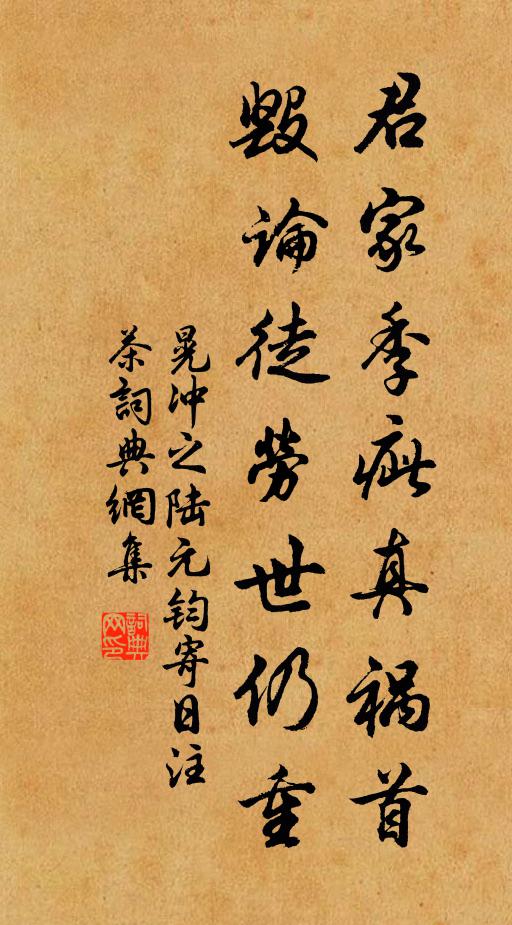 君家季疵真祸首
毁論徒勞世仍重
晁冲之陆元钧寄日注
茶詞典網集
詞典网印